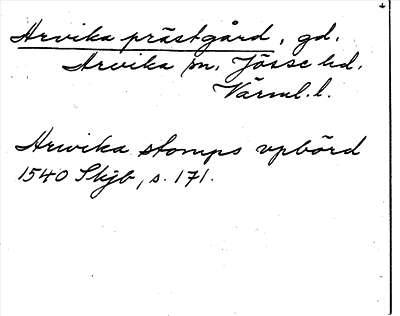 Arvika prästgård, gd.
Arvika sn. Jösse hd.
Värml. l.
Arwika stomps vpbörd
1540 Skjb, s. 171.